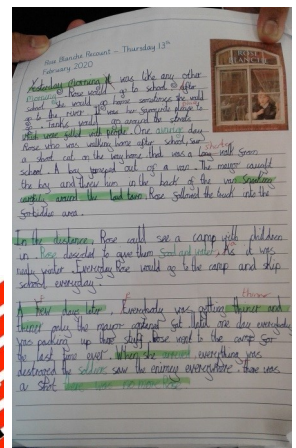 Rose Blanche Recount – Thursday 13th
February 2020
Yesterday Morning, it was like any other
morning. Rose would go to school & after
school she would go home sometimes she would
go to the river it was her favourite place to
go. Tanks would go around the streets
which were filled with people. One day
Rose who was walking home after school, saw
a short cut on the way home that was a long walk from
school. A boy jumped out of a van. The mayor caught
the boy and threw him in the back of the van
around the town. Rose followed the truck into the
forbidden area.
In the distance, Rose could see a camp with children
in. Rose decided to give them food and water. As it was
nearly winter. Everyday Rose would go to the camp and skip
school everyday.
thinner
A few days later, Everybody was getting thiner and
thiner only the mayor got fat. Until one day everybody
was packing up there stuff. Rose went to the camp for
the last time ever. When she arrived everything was
destroyed the soldiers saw the enemy everywhere. There was
a shot
ROSE
BLANCHE